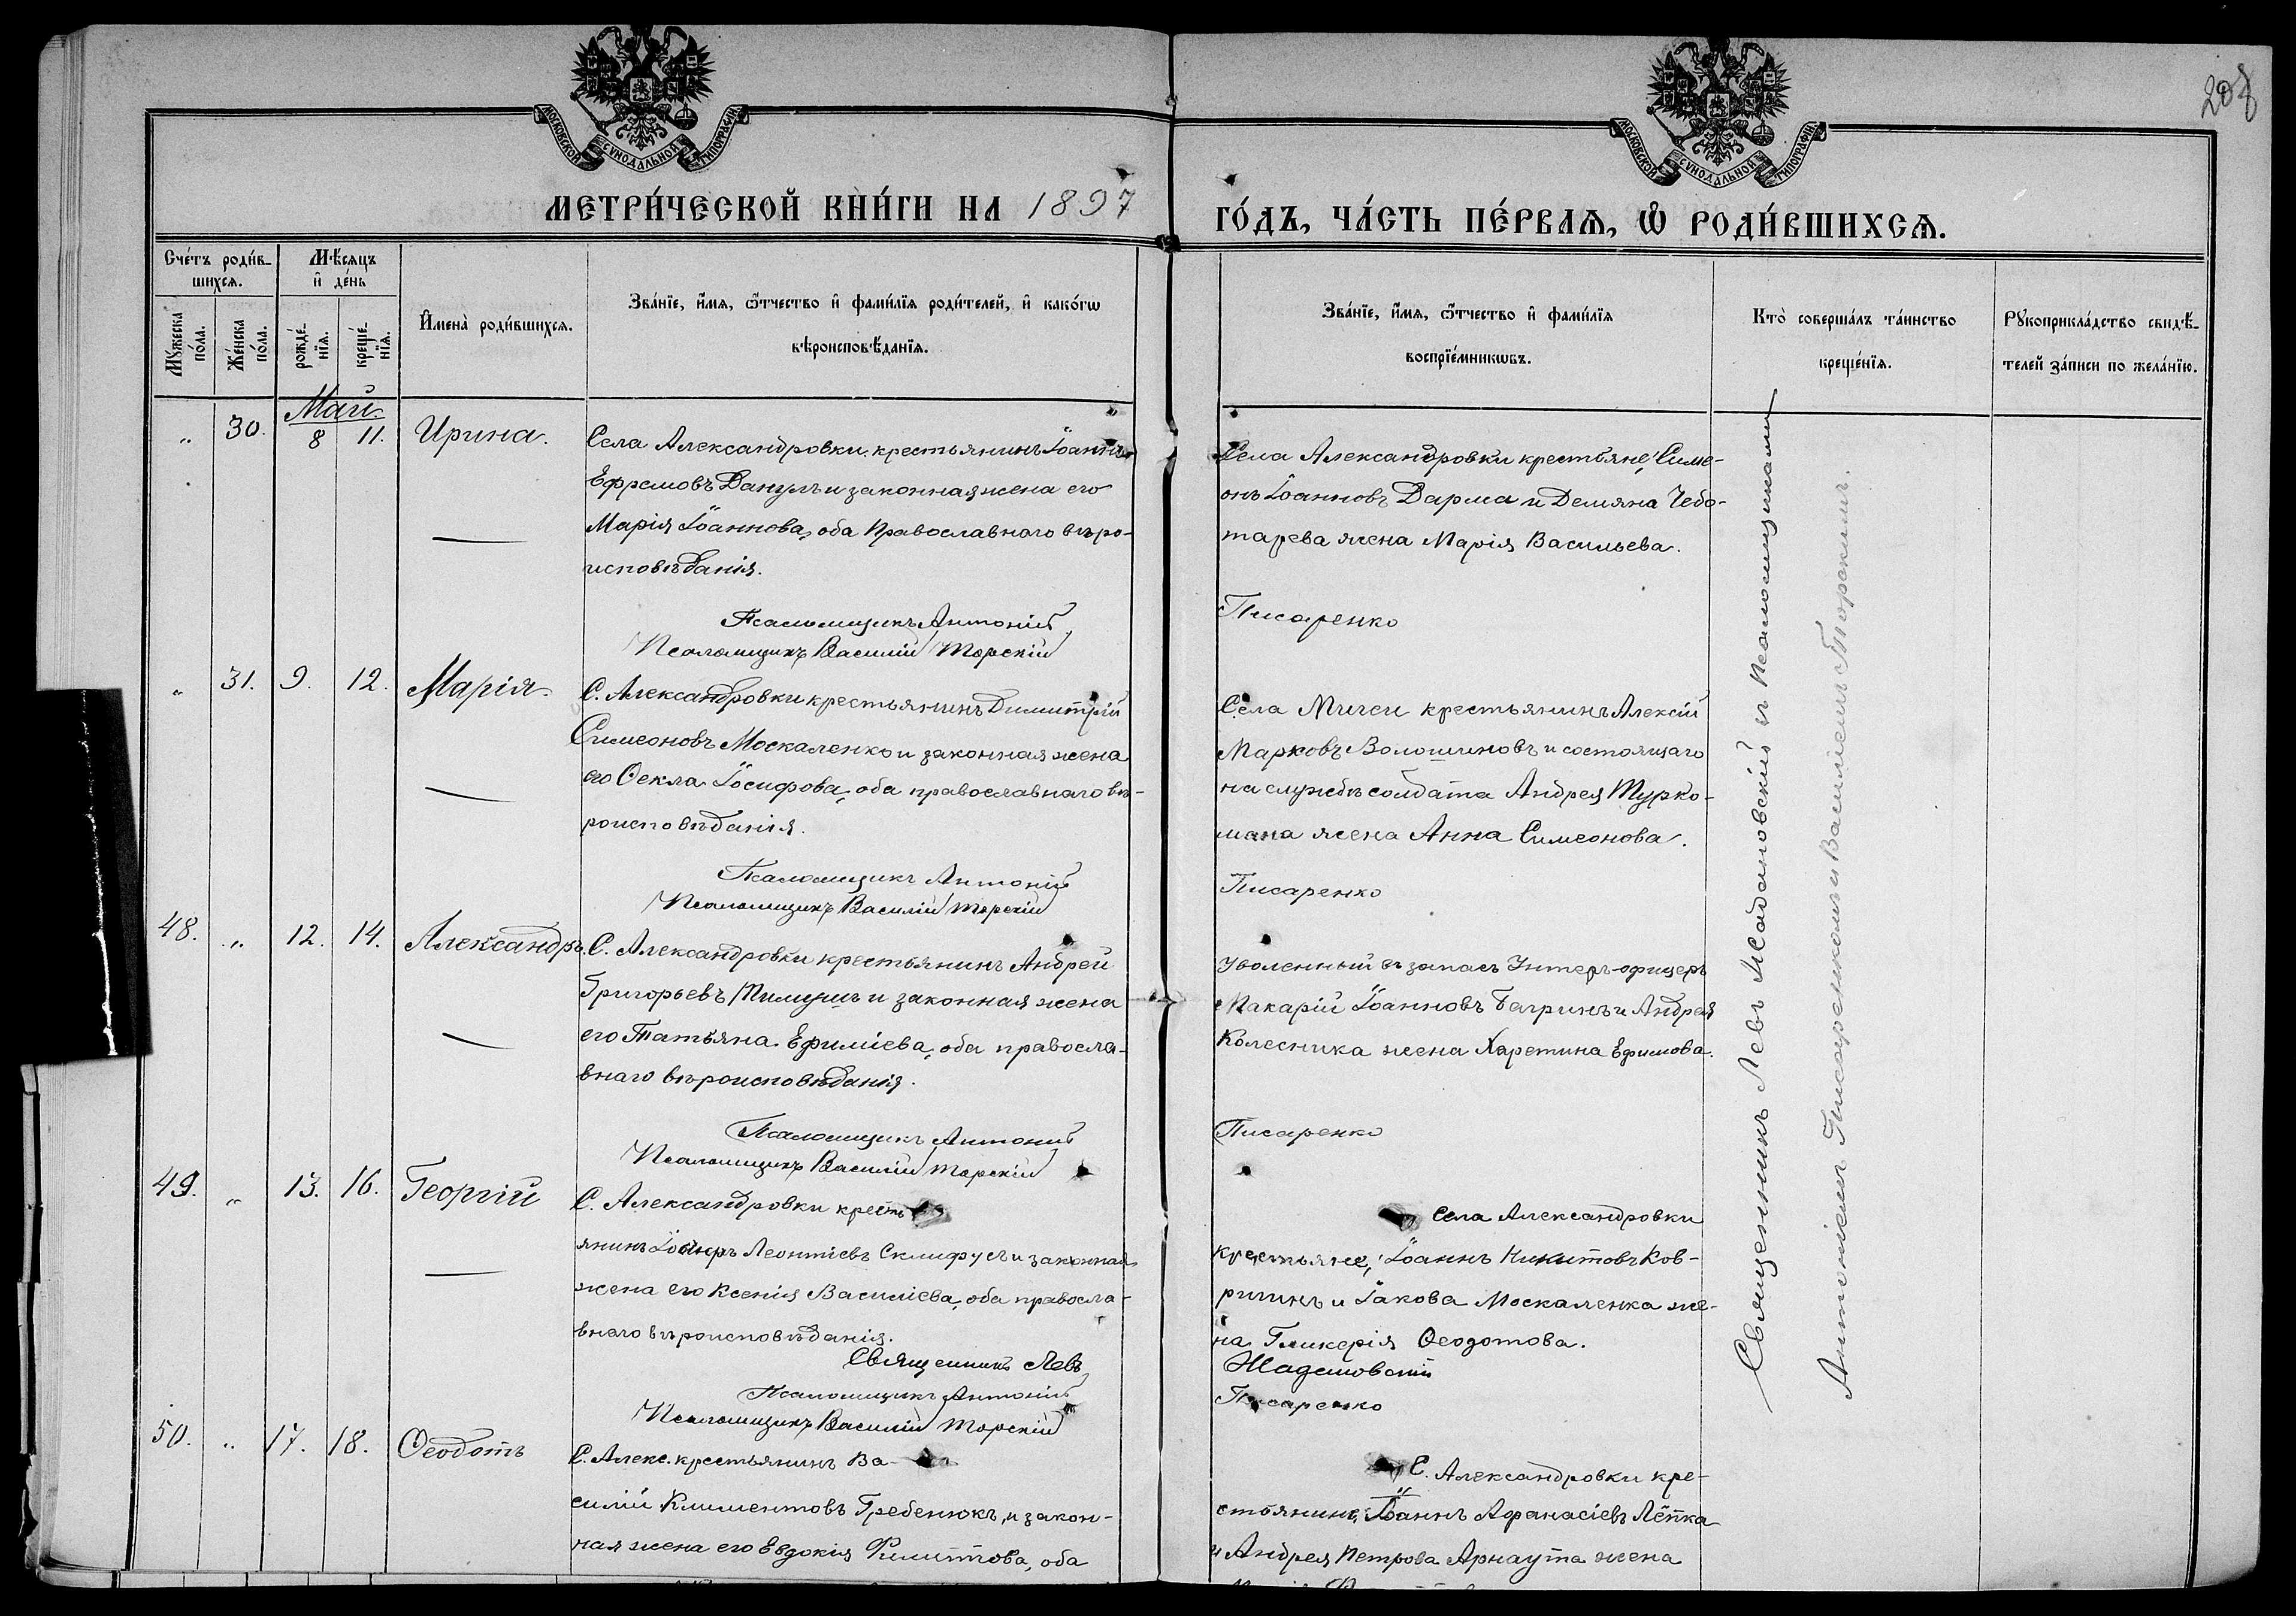 208
МОСКОВСКОЙ СѴНОДАЛЬНОЙ ТИПОГРАФІИ.
МОСКОВСКОЙ СѴНОДАЛЬНОЙ ТИПОГРАФІИ.
МЕТРИ́ЧЕСКОЙ КНИ́ГИ НА 1897
ГО́ДЪ, ЧА́СТЬ ПЕ́РВАѦ, Ѡ҆ РОДИ́ВШИХСѦ.
Сче́тъ роди́в-
шихсѧ.
Мѣ́сяцъ
и҆ де́нь
Мꙋ́жеска
по́ла.
Же́нска
по́ла.
рожде́-
нїѧ.
креще́-
нїѧ.
И҆мена̀ роди́вшихсѧ.
Зва́нїе, и҆́мѧ, ѻ҆́тчество и҆ фами́лїѧ роди́телей, и҆ како́гѡ
вѣроисповѣ́данїѧ.
Зва́нїе, и҆́мѧ, ѻ҆́тчество и҆ фами́лїѧ
воспрїе́мникѡвъ.
Кто̀ соверша́лъ та́инство
креще́нїѧ.
Рꙋкоприкла́дство свидѣ́-
телей за́писи по жела́нїю.
Май.
„ 30. 8 11. Ирина.
Села Александровки, крестьянинъ Іоаннъ
Ефремовъ Данулъ и законная жена его
Марія Іоаннова, оба Православнаго вѣро-
исповѣданія.
Псаломщикъ Антоній
Псаломщикъ Василій Торскій
Села Александровки крестьяне: Симе-
онъ Іоанновъ Дарма и Демяна Чебо-
тарева жена Марія Васильева.
Писаренко
„ 31. 9. 12. Марія.
С. Александровки крестьянинъ Димитрій
Симеоновъ Москаленко и законная жена
его Ѳекла Іосифова, оба православнаго вѣ-
роисповѣданія.
Псаломщикъ Антоній
Псаломщикъ Василій Торскій
Села крестьянинъ Алексій
Марковъ Волошиновъ и состоящаго
на службѣ солдата Андрея Турко-
мана жена Анна Симеонова.
Писаренко
48. „ 12. 14. Александръ.
С. Александровки крестьянинъ Андрей
Григорьевъ и законная жена
его Татьяна Ефиміева, оба правосла-
внаго вѣроисповѣданія.
Псаломщикъ Антоній
Псаломщикъ Василій Торскій
Уволенный въ запасъ Унтеръ-офицеръ
Макарій Іоанновъ Багринъ и Андрея
Колесника жена Харетина Ефимова.
Писаренко
49. „ 13. 16. Георгій
С. Александровки кресть
янинъ Леонтіевъ Склифусъ и законная
жена его Ксенія Василіева, оба правосла-
внаго вѣроисповѣданія.
Священникъ Левъ
Псаломщикъ Антоній
Псаломщикъ Василій Торскій
Села Александровки
крестьяне: Іоаннъ Никитовъ Ков-
ригинъ и Іакова Москаленка же-
на Гликерія Ѳеодотова.
Жадановскій
Писаренко
50. „ 17. 18. Ѳеодотъ
С. Алекс. крестьянинъ Ва-
силій Климентовъ Гребенюкъ, и закон-
ная жена его Евдокія Филиппова, оба
С. Александровки кре-
стьянинъ, Іоаннъ Афанасіевъ Лѣпка
и Андрея Петрова Арнаута жена
Священникъ Левъ Жадановскій и псаломщиками
Антоніемъ Писаренкомъ и Василіемъ Торскимъ.